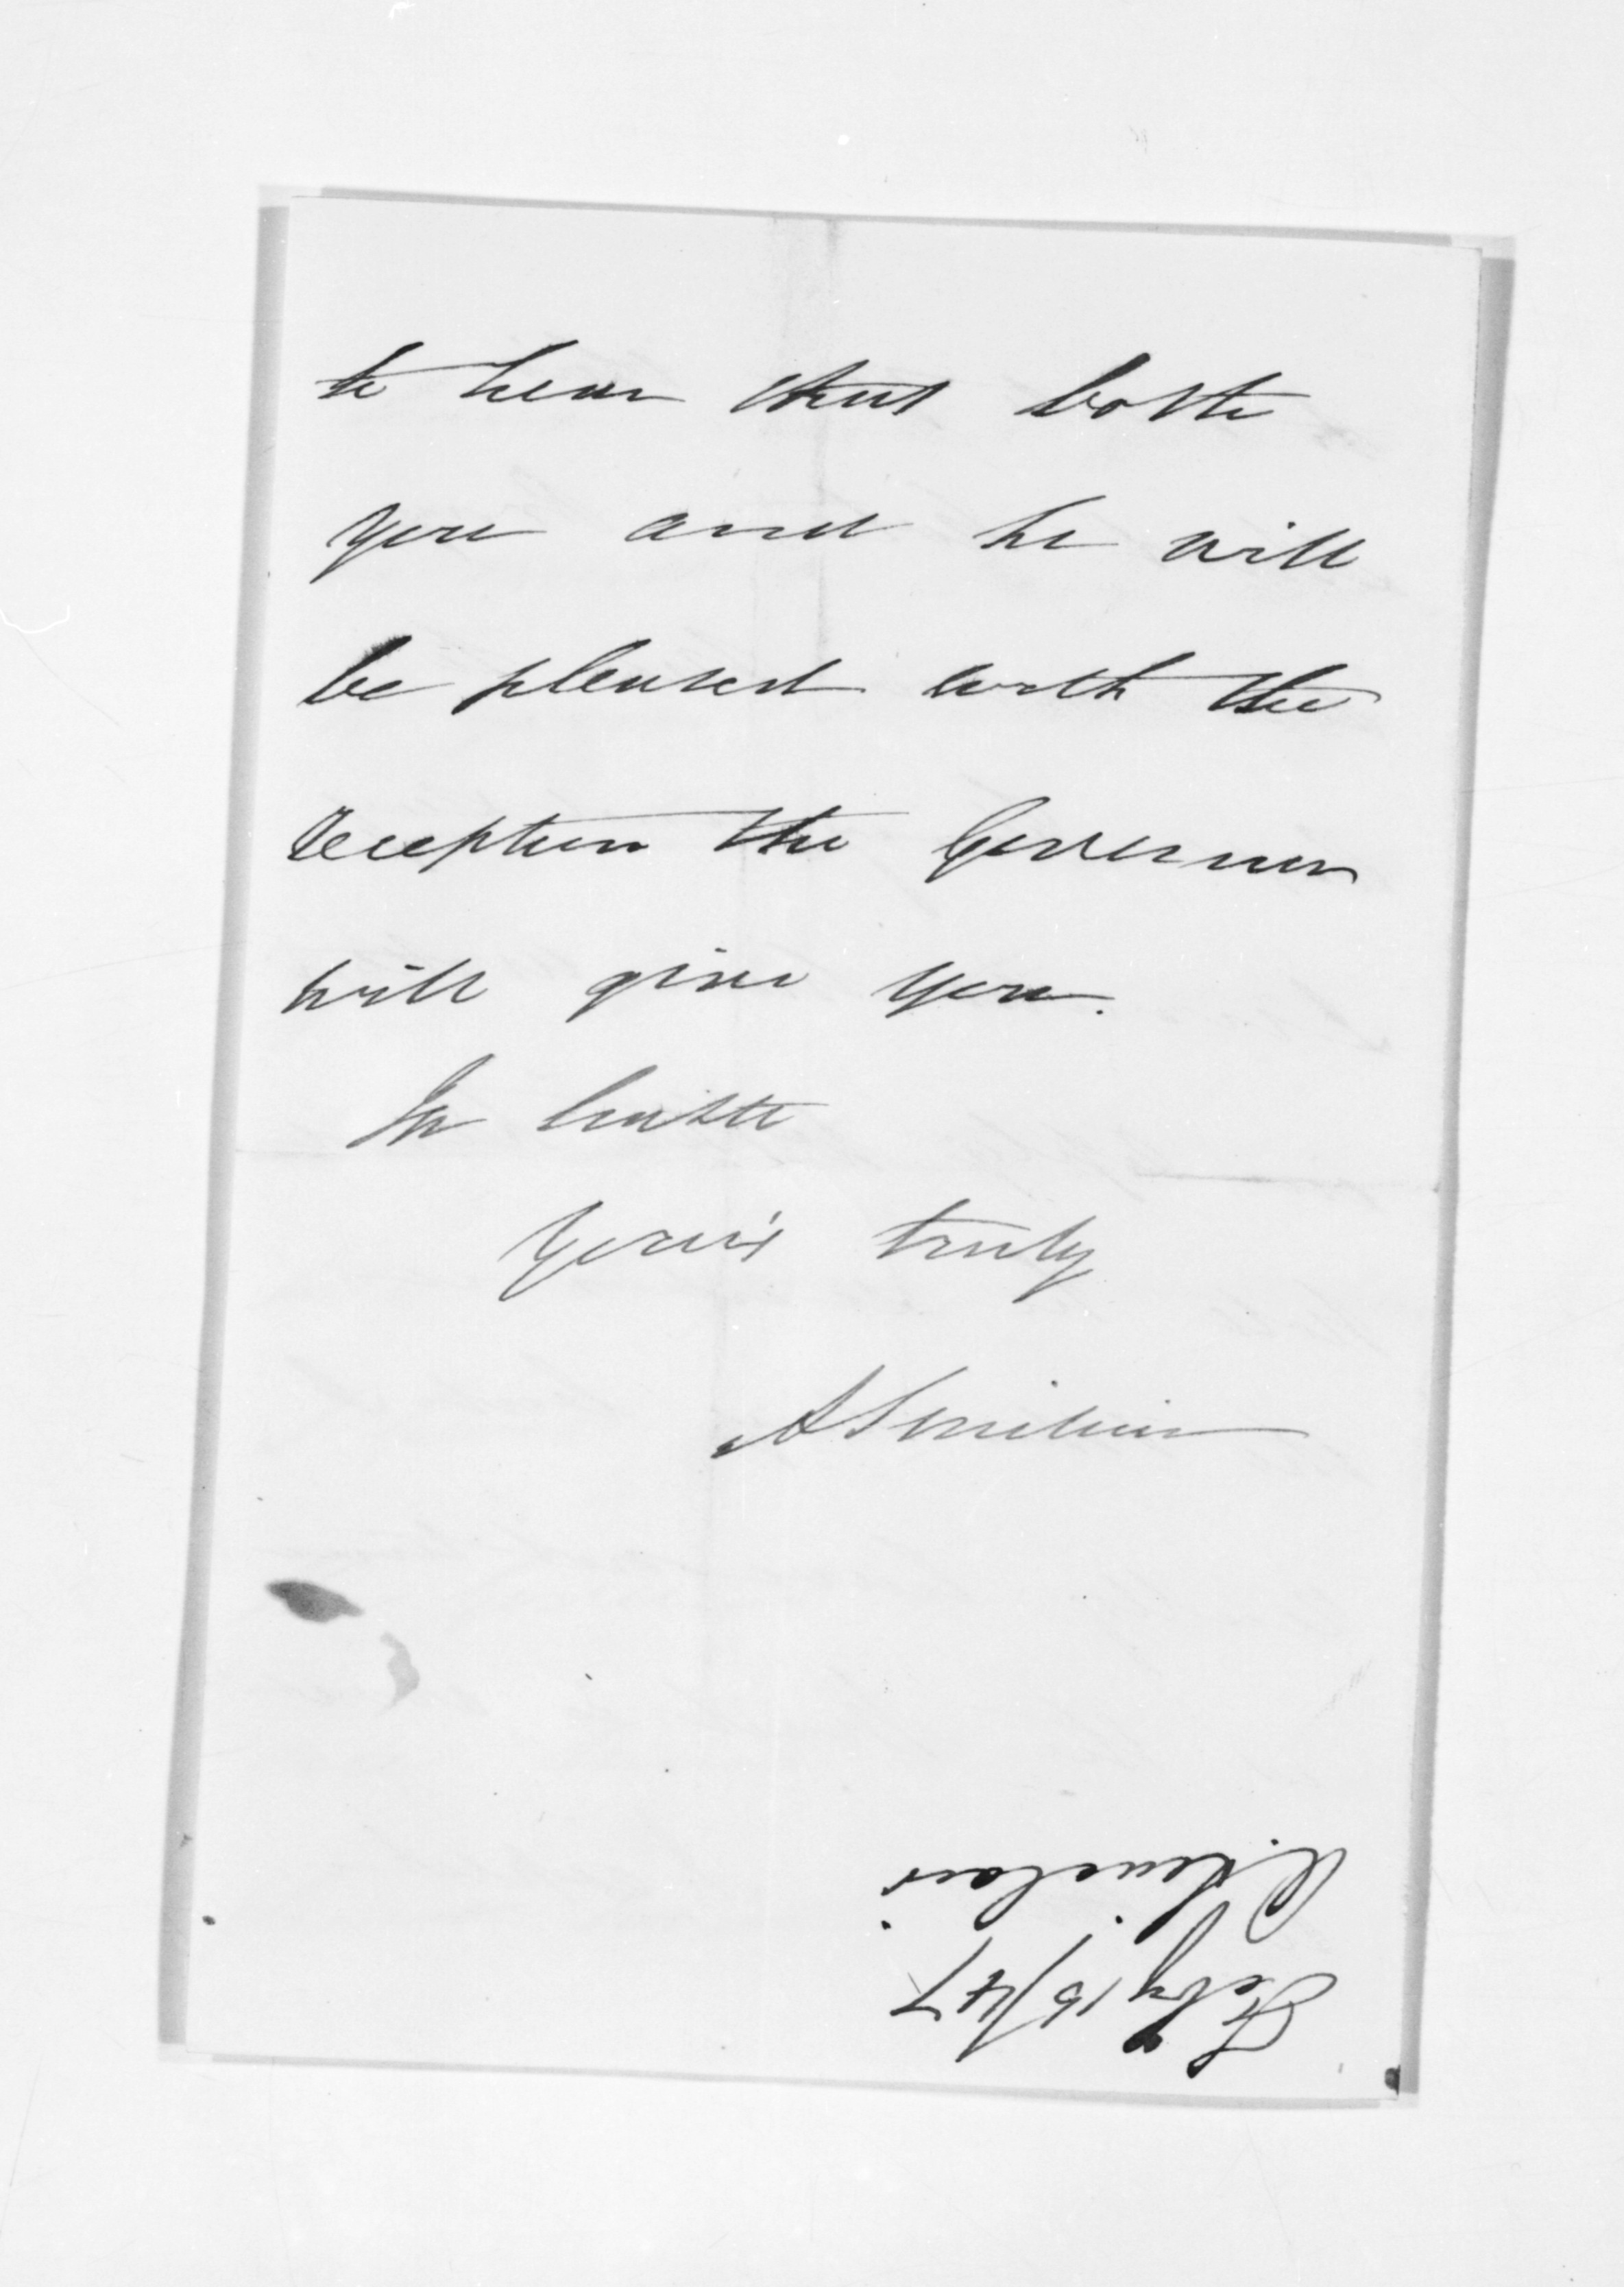 to hear that both
you and he will
be pleased with the
reception the Governor
will give you.
In haste
Your's truly
A Sinclair
A. Sinclair
Feby 15/47